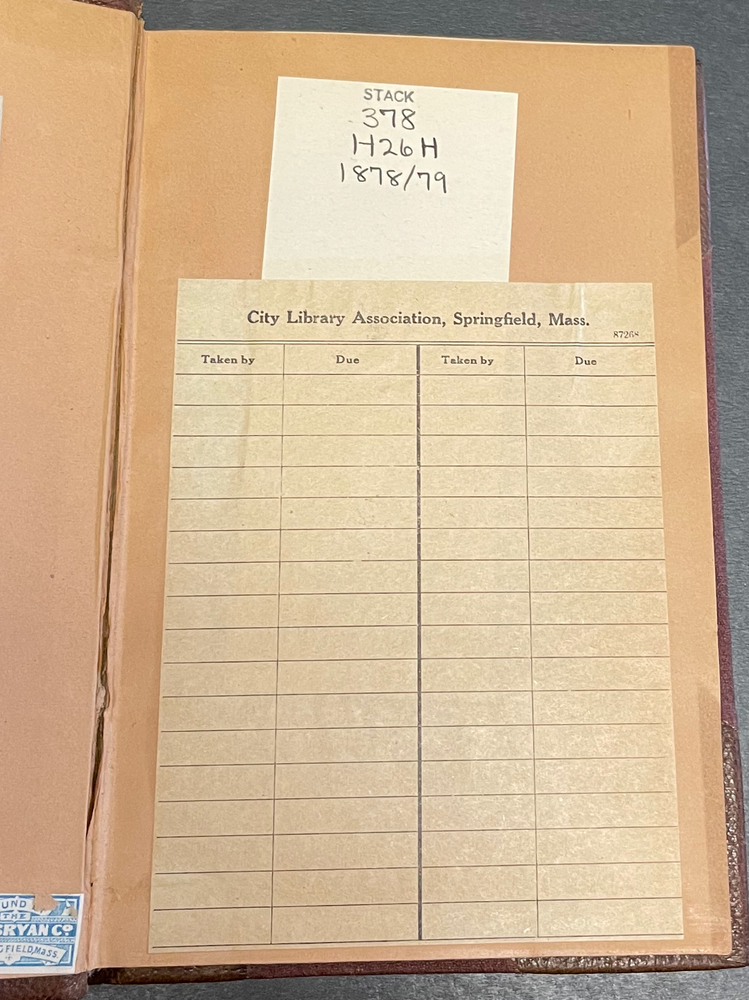 STACK
378
H26H
1878/79
City Library Association, Springfield, Mass.
Taken by Due Taken by Due
THE
BRYAN Cº